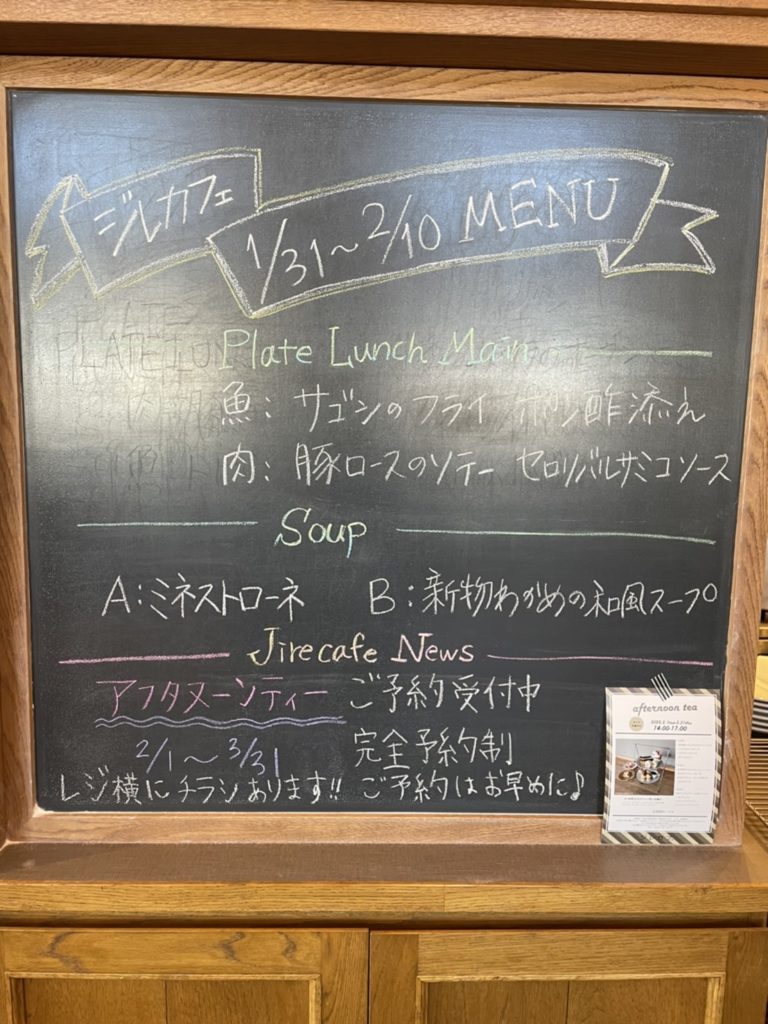 ジルカフェ
1/31～2/10 MENU
Plate Lunch Main
魚: サゴシのフライ ポン酢添え
肉: 豚ロースのソテー セロリバルサミコソース
Soup
A:ミネストローネ B:新物わかめの和風スープ
Jirecafe News
アフタヌーンティー ご予約受付中
2/1～3/31 完全予約制
レジ横にチラシあります!! ご予約はお早めに♪
afternoon tea
14:00-17:00